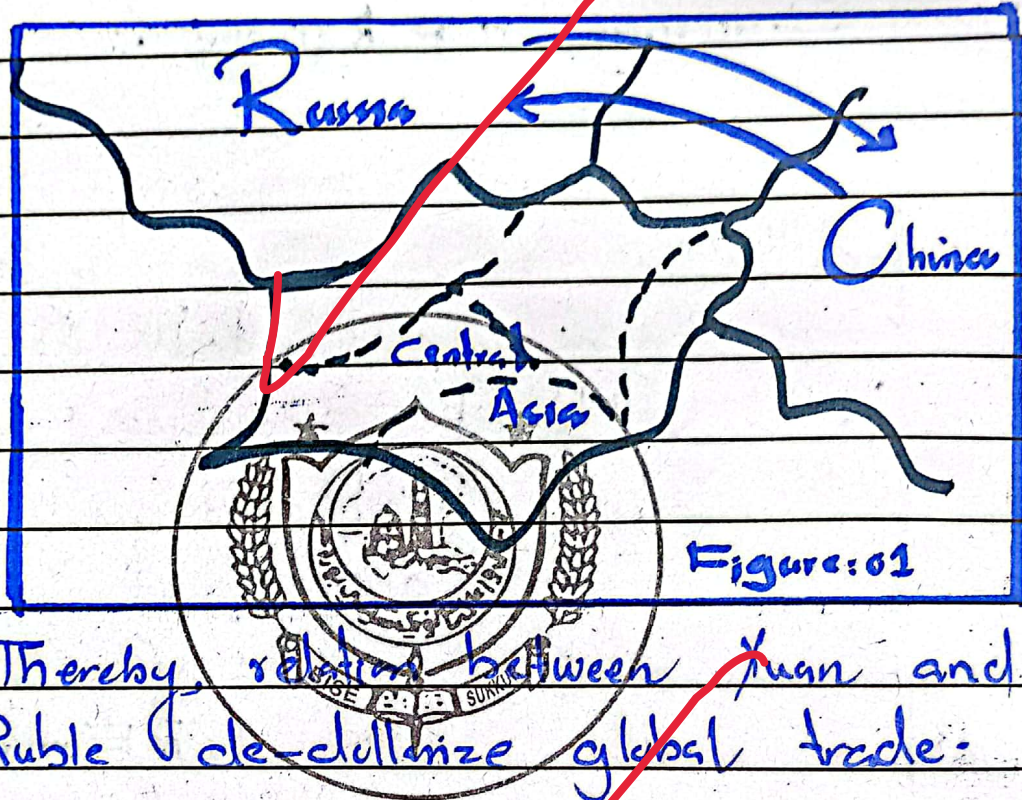 Russia
China
Central
Asia
Figure:01
Thereby, relation between Yuan and
Ruble de-dollarize global trade.
SUKKUR